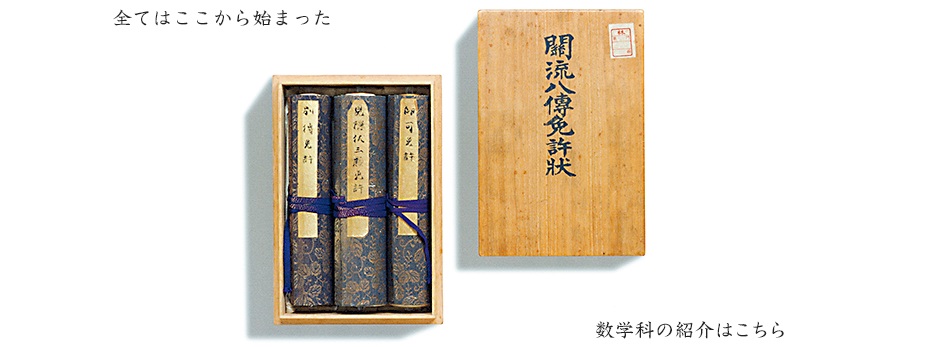 全てはここから始まった
關流八傳免許狀
別傳免許
見隠伏三題免許
印可免許
数学科の紹介はこちら